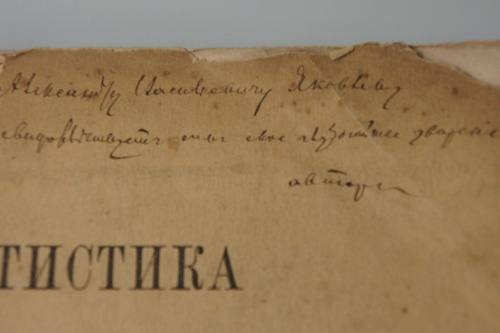 Александру Васильевичу Яковлеву
свидетельствуетъ свое уваженіе
авторъ
ТИСТИКА